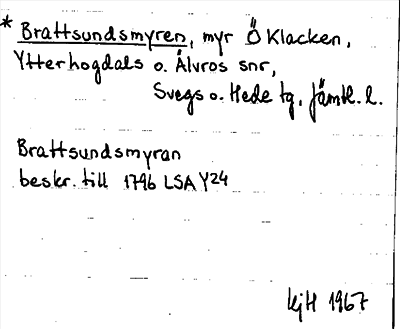 * Brattsundsmyren, myr Ö Klacken,
Ytterhogdals o. Älvros snr,
Svegs o. Hede tg, Jämtl. l.
Brattsundsmyran
beskr. till 1796 LSA Y24
kjH 1967